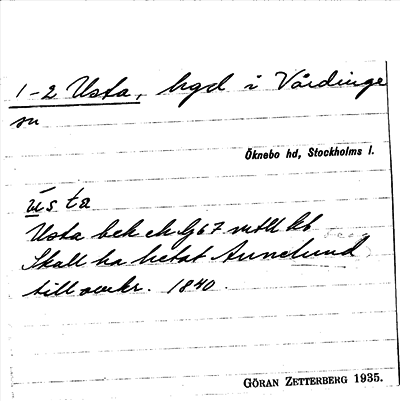 1-2 Usta, hgd i Vårdinge
sn
Öknebo hd, Stockholms l.
ūs ta
Usta bek ek G67 mtll kb
Skall ha hetat Annelund
till omkr. 1840.
GÖRAN ZETTERBERG 1935.